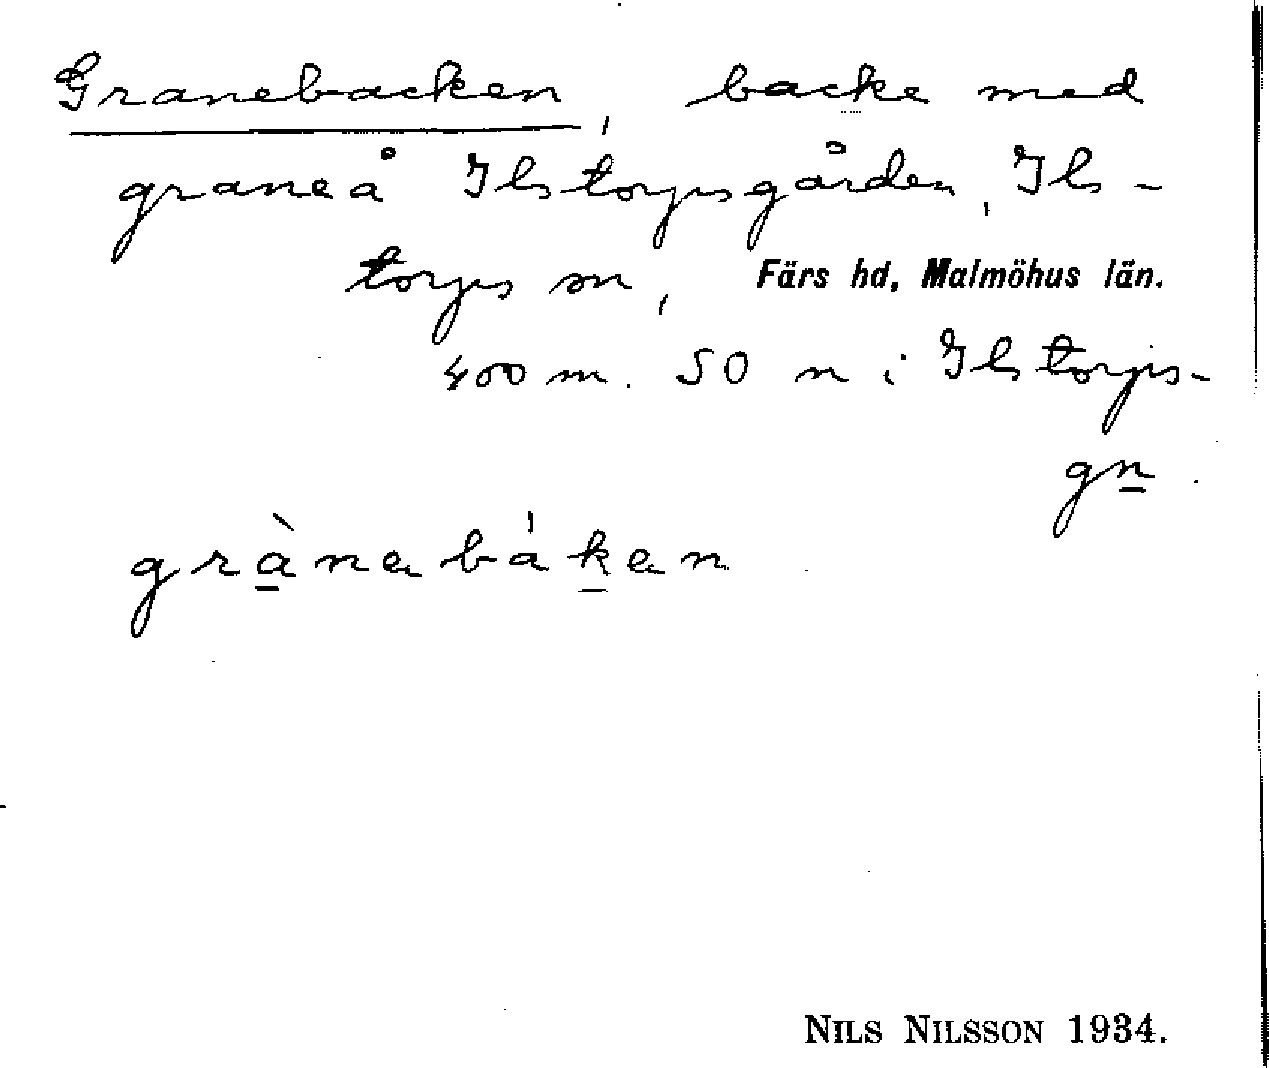 Granebacken, backe med
grane å Ilstorpsgården, Ils-
torps sn, Färs hd, Malmöhus län.
400 m. SO n i Ilstorps-
gn.
grànabákan
NILS NILSSON 1934.